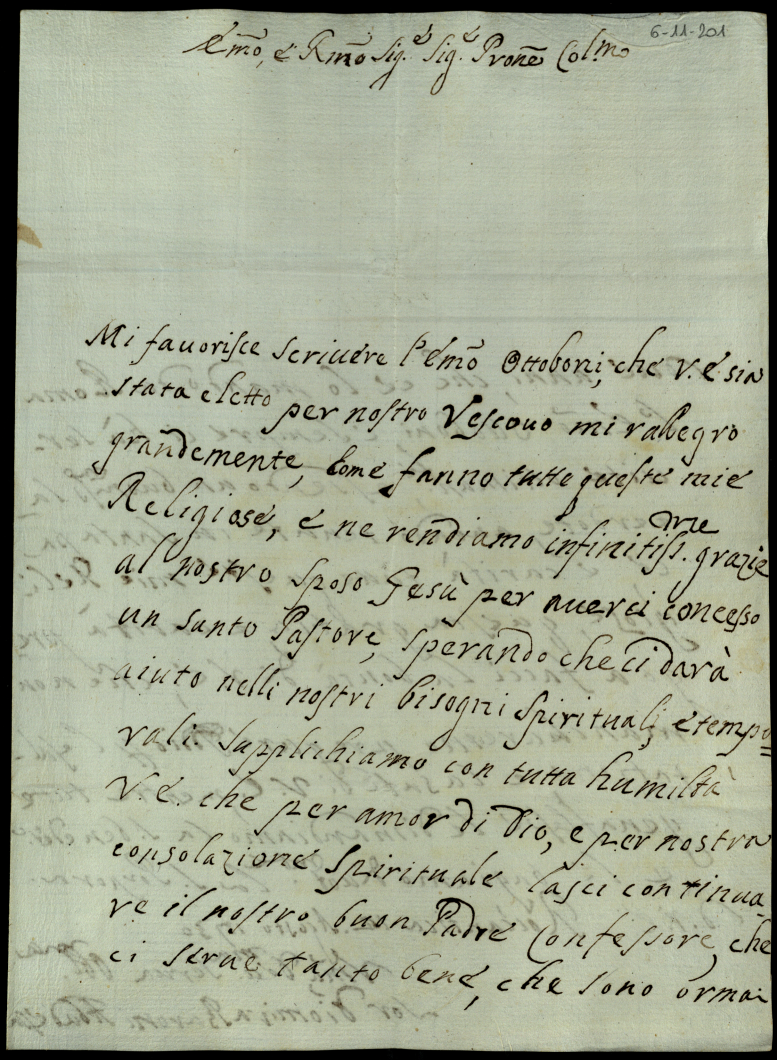 6-11-201
Emo, e Rmo Sig.e Sig.e Prone Colmo
Mi fauorisce scriuere l'Emo Ottoboni, che V. E sia
stata eletto per nostro Vescouo mi rallegro
grandemente, Come fanno tutte queste mie
Religiose, e ne rendiamo infinitiss.me grazie
al nostro sposo Gesù per auerci concesso
un santo Pastore, sperando che ci darà
aiuto nelli nostri bisogni spirituali, e tempo
rali. supplichiamo con tutta humiltà
V. E. che per amor di Dio, e per nostra
consolazione spirituale lasci continua
re il nostro buon Padre Confessore, che
ci serue tanto bene, che sono ormai